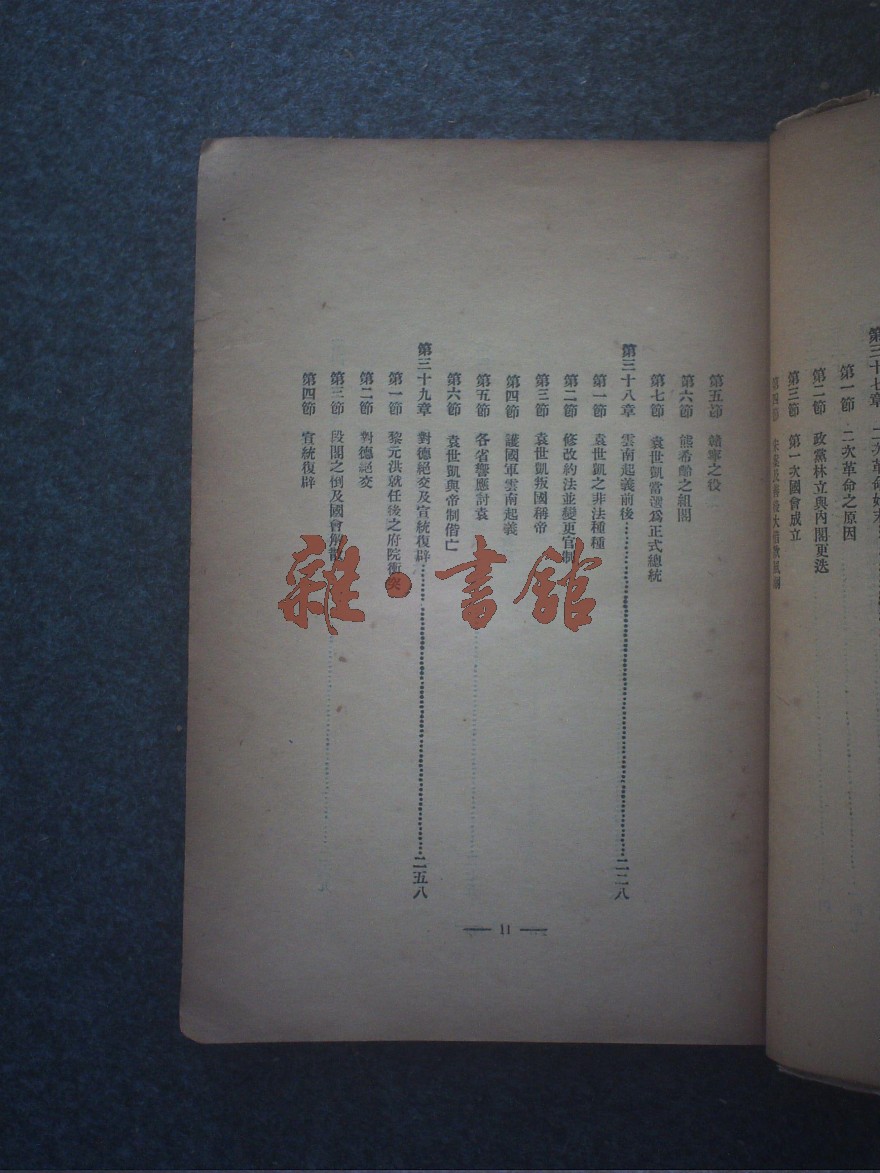 第三十七章 二次革命始末
第一節 二次革命之原因
第二節 政黨林立與內閣更迭
第三節 第一次國會成立
第四節
第五節 贛寧之役
第六節 熊希齡之組閣
第七節 袁世凱當選爲正式總統
第三十八章 雲南起義前後……二二八
第一節 袁世凱之非法種種
第二節 修改約法並變更官制
第三節 袁世凱叛國稱帝
第四節 護國軍雲南起義
第五節 各省響應討袁
第六節 袁世凱與帝制偕亡
第三十九章 對德絕交及宣統復辟……二五八
第一節 黎元洪就任後之府院衝突
第二節 對德絕交
第三節 段閣之倒及國會解散
第四節 宣統復辟
— 11 —
雜·書舘